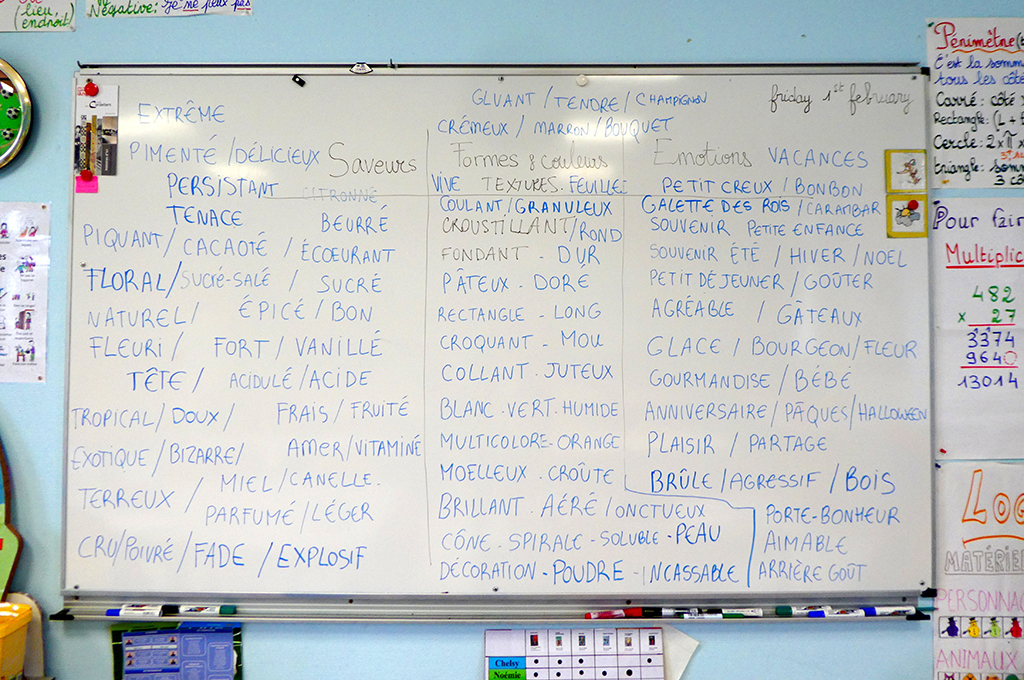 (lieu
endroit)
Négative: Je ne peux pas
GLUANT / TENDRE / CHAMPIGNON
friday 1st february
EXTRÊME
CRÉMEUX / MARRON / BOUQUET
PIMENTÉ / DÉLICIEUX
Saveurs
Formes & couleurs
Emotions VACANCES
PERSISTANT CITRONNÉ
VIVE TEXTURES. FEUILLE
PETIT CREUX / BONBON
TENACE BEURRÉ
COULANT / GRANULEUX
GALETTE DES ROIS / CARAMBAR
PIQUANT / CACAOTÉ / ÉCOEURANT
CROUSTILLANT / ROND
SOUVENIR PETITE ENFANCE
FONDANT - DUR
SOUVENIR ÉTÉ / HIVER / NOEL
FLORAL / SUCRÉ-SALÉ / SUCRÉ
PÂTEUX - DORÉ
PETIT DÉJEUNER / GOÛTER
NATUREL / ÉPICÉ / BON
RECTANGLE - LONG
AGRÉABLE / GÂTEAUX
FLEURI / FORT / VANILLÉ
CROQUANT - MOU
GLACE / BOURGEON / FLEUR
TÊTE / ACIDULÉ / ACIDE
COLLANT - JUTEUX
GOURMANDISE / BÉBÉ
TROPICAL / DOUX / FRAIS / FRUITÉ
BLANC - VERT - HUMIDE
ANNIVERSAIRE / PÂQUES / HALLOWEEN
EXOTIQUE / BIZARRE / AMER / VITAMINÉ
MULTICOLORE - ORANGE
PLAISIR / PARTAGE
TERREUX / MIEL / CANELLE.
MOELLEUX - CROÛTE
BRÛLE / AGRESSIF / BOIS
PARFUMÉ / LÉGER
BRILLANT - AÉRÉ / ONCTUEUX
PORTE-BONHEUR
CRU / POIVRÉ / FADE / EXPLOSIF
CÔNE - SPIRALE - SOLUBLE - PEAU
AIMABLE
DÉCORATION - POUDRE - INCASSABLE
ARRIÈRE GOÛT
Périmètre
C'est la somm
tous les côté
Carré: côté x
Rectangle: (L +
Cercle: 2 x π x
triangle: somm
3 cô
Pour fair
Multiplic
482
x 27
3374
9640
13014
LOG
MATÉRIE
PERSONNAG
ANIMAUX
Chelsy
Noémie